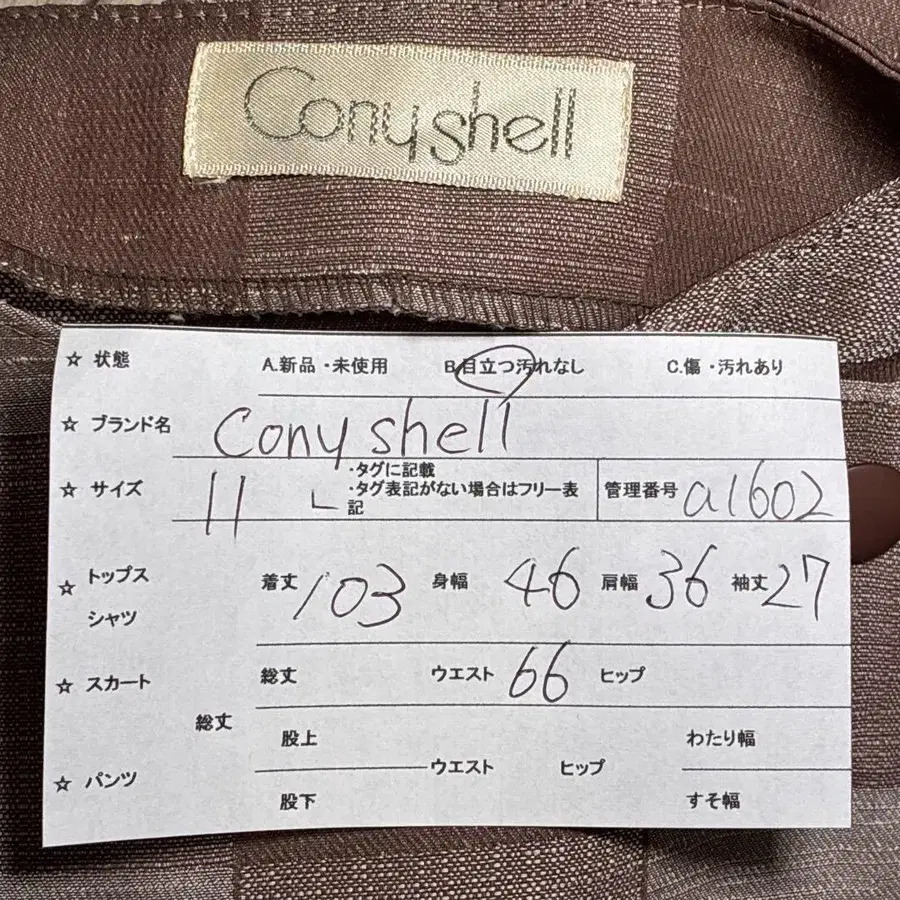 Cony shell
☆ 状態 A.新品・未使用 B.目立つ汚れなし C.傷・汚れあり
☆ ブランド名 Cony shell
☆ サイズ 11 ・タグに記載
・タグ表記がない場合はフリー表記
管理番号 a1602
☆ トップス
シャツ
着丈 103 身幅 46 肩幅 36 袖丈 27
☆ スカート 総丈 ウエスト 66 ヒップ
☆ パンツ 総丈 股上 ウエスト ヒップ わたり幅
股下 すそ幅